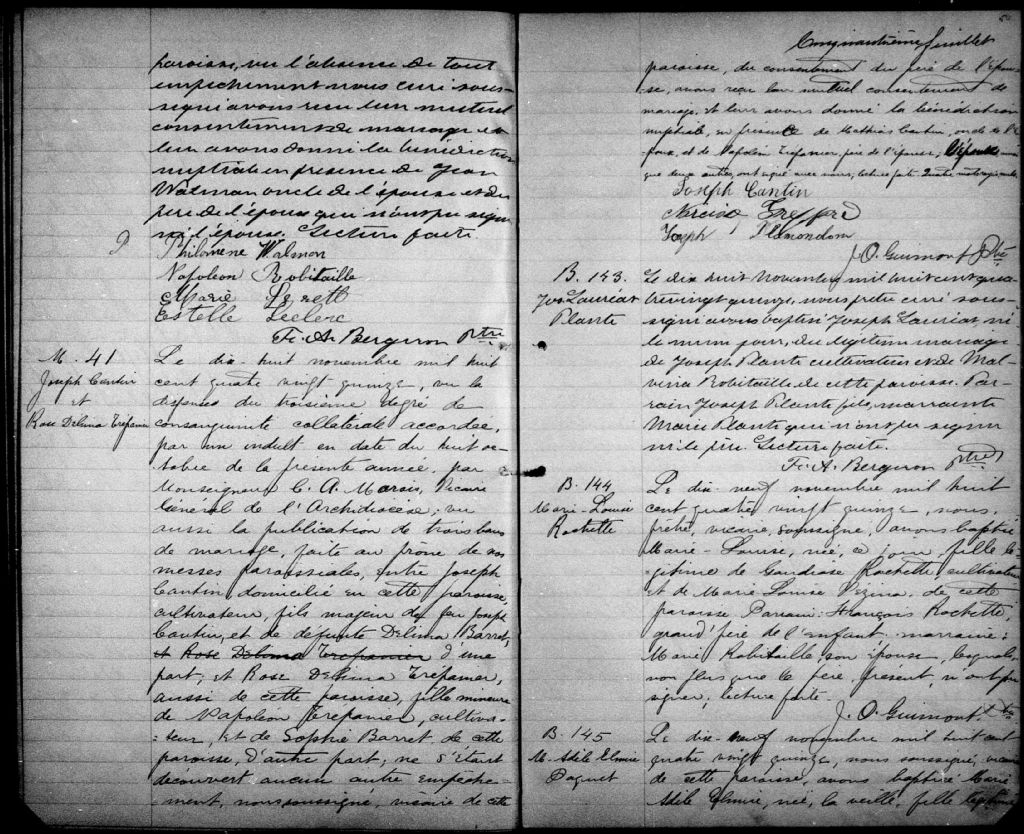 paroisse, vu l'absence de tout
empêchement nous curé sous-
signé avons reçu leur mutuel
consentement de mariage et
leur avons donné la bénédiction
nuptiale en présence de Jean
Watman oncle de l'épouse et du
père de l'époux qui n'ont pu signer
ni l'épouse. Lecture faite.
Philomène Walmon
Napoléon Robitaille
Marie
Estelle Leclerc
F. A. Bergeron Ptre
M. 41
Joseph Cantin
et
Rose Delima Trépanier
Le dix-huit novembre mil huit
cent quatre vingt quinze, vu la
dispense du troisième degré de
consanguinité collatérale accordée,
par un indult en date du huit oc-
tobre de la présente année, par
Monseigneur C. A. Marois, Vicaire
Général de l'Archidiocèse; vu
aussi la publication de trois bans
de mariage, faite au prône de nos
messes paroissiales, entre Joseph
Cantin domicilié en cette paroisse,
cultivateur, fils majeur de feu Joseph
Cantin, et de défunte Delima Barret,
et Rose Delima Trépanier d'une
part; et Rose Delima Trépanier,
aussi de cette paroisse, fille mineure
de Napoléon Trépanier, cultiva-
-teur, et de Sophie Barret, de cette
paroisse, d'autre part; ne s'étant
découvert aucun autre empêche-
-ment, nous soussigné, vicaire de cette
Cinquantième feuillet
paroisse, du consentement du père de l'épou-
se, avons reçu leur mutuel consentement de
mariage et leur avons donné la bénédiction
nuptiale, en présence de Mathias Cantin, oncle de l'é-
poux, et de Napoléon Trépanier, père de l'épouse,
que deux autres, ont signé avec nous, lecture faite
Joseph Cantin
Narcisse
Joseph Plamondon
J. O. Guimont Ptre
B. 143.
Jos. Lauréat
Plante
Le dix huit Novembre mil huit cent qua-
trevingt quinze, nous prêtre curé sous-
signé avons baptisé Joseph Lauréat, né
le même jour, du légitime mariage
de Joseph Plante cultivateur et de Mal-
vina Robitaille de cette paroisse. Par-
rain Joseph Plante fils, marraine
Marie Plante qui n'ont pu signer
ni le père. Lecture faite.
F. A. Bergeron ptre
B. 144
Marie-Louise
Rochette
Le dix-neuf novembre mil huit
cent quatre vingt quinze, nous,
prêtre, vicaire, soussigné, avons baptisé
Marie-Louise, née, ce jour, fille lé-
gitime de Gaudiose Rochette, cultivateur
et de Marie Louise Vézina, de cette
paroisse. Parrain: François Rochette,
grand'père de l'enfant. marraine:
Marie Robitaille, son épouse, lesquels,
non plus que le père, présent, n'ont pu
signer; lecture faite.
J. O. Guimont, Ptre
B. 145
M. Adèle Elmire
Paquet
Le dix-neuf novembre mil huit cent
quatre vingt quinze, nous soussigné, vicaire
de cette paroisse, avons baptisé Marie
Adèle Elmire, née, la veille, fille légitime